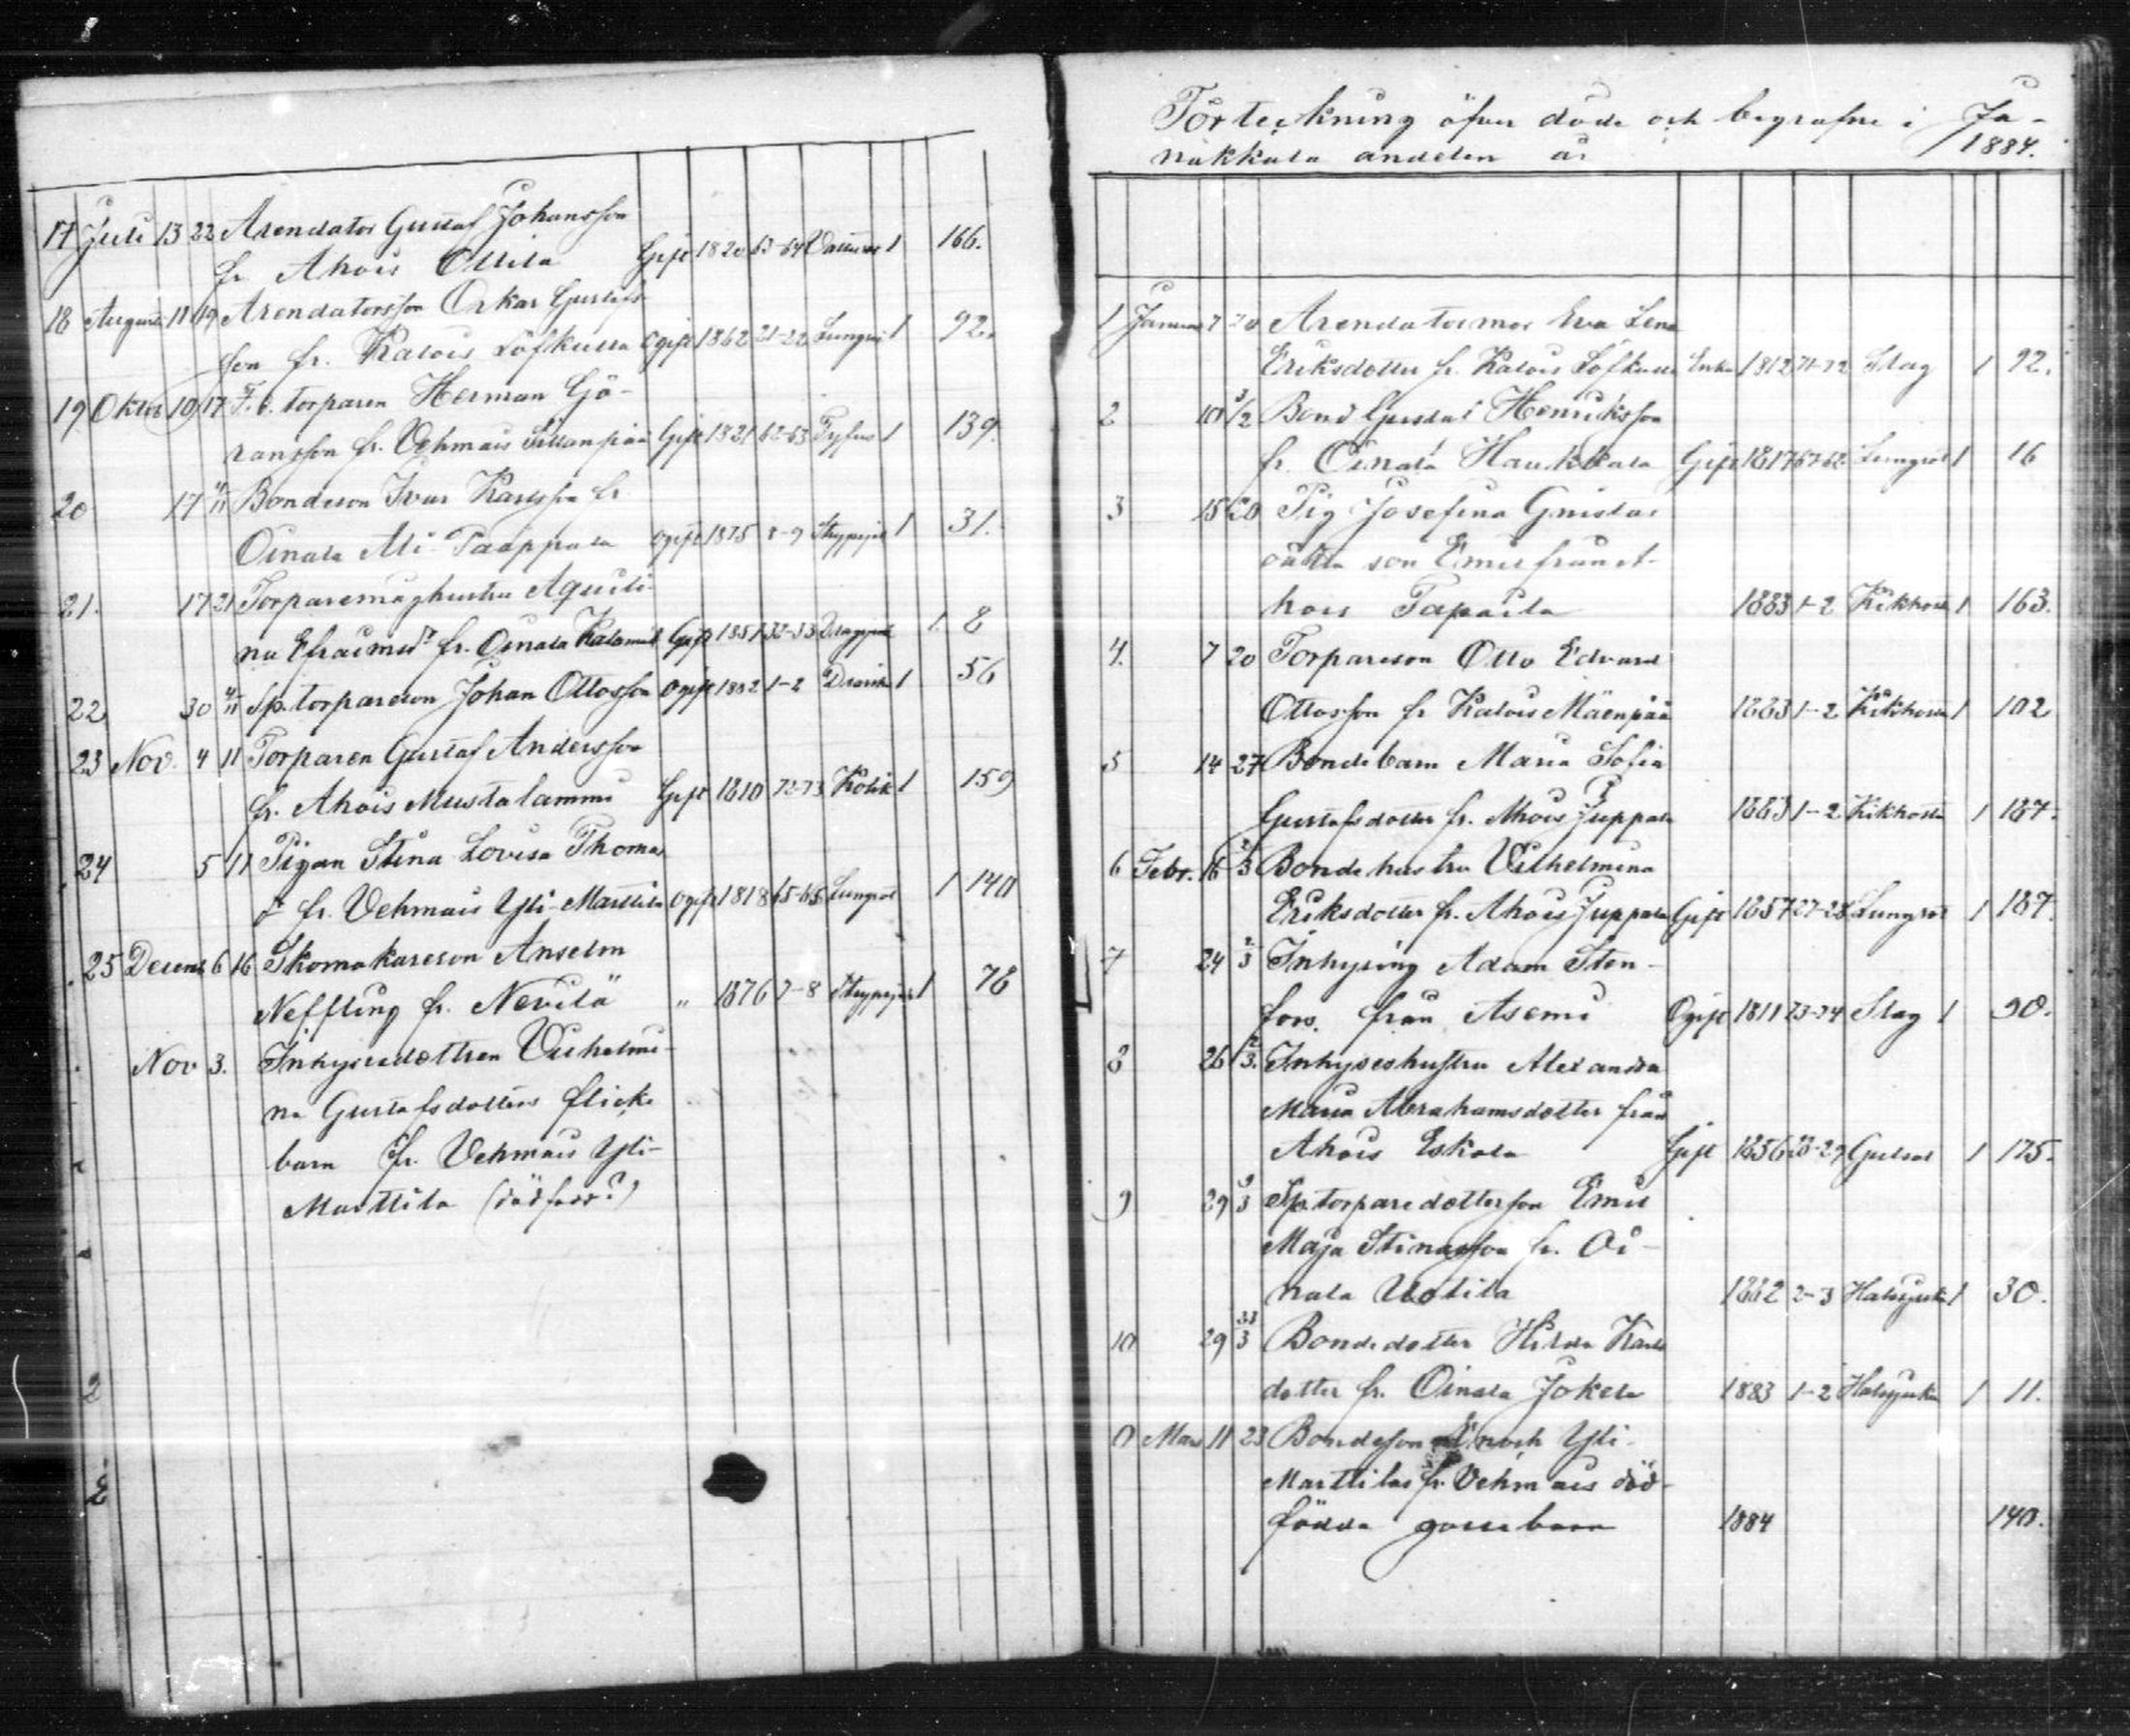 17 Juli 13 22 Arendator Gustaf Johansson
fr. Ahois Ollila Gift 1820 63-64 1 166.
18 Augusti 11 19 Arendatorsson Oskar Gustafs
son fr. Kalois Löfkulla ogift 1862 21-22 Lungsot 1 92.
19 Oktober 10 17 F. d. torparen Herman Gö-
ransson fr. Vehmais Sillanpää Gift 1821 62-63 Tyfus 1 139.
20 17 4/11 Bondeson Ivar Karlsson fr
Oinala Ali-Paappala ogift 1875 8-9 Strypsjuk 1 31.
21. 17 21 Torparemåghustru Aquili-
na Efraimsdr fr. Oinala Gift 1851 32-33 1. 8
22 30 4/11 Sp. torpareson Johan Ottosson ogift 1882 1-2 1 56
23 Nov. 4 11 Torparen Gustaf Andersson
fr. Ahois Mustalammi Gift 1810 72-73 Kolik 1 159
24 5 11 Pigan Stina Lovisa Thomas
dr fr. Vehmais Yli-Marttila ogift 1818 65-66 Lungsot 1 140
25 Decemb 6 16 Skomakareson Anselm
Neffling fr. Nevilä " 1876 7-8 Strypsjuk 1 78
Nov 3. Inhysesdottren Vilhelmi-
na Gustafsdotters flicke
barn fr. Vehmais Yli-
Marttila (dödfödd?)
2
2
Förteckning öfver döde och begrafne i Ja-
nakkala andelen år 1884.
1 Januar 7 20 Arendatormor Eva Lena
Eriksdotter fr. Kalois Löfkulla Enka 1812 71-72 Slag 1 92.
2 10 3/2 Bond Gustaf Henriksson
fr. Oinala Haukkala Gift 1817 67-68 Lungsot 1 16
3 15 20 Pig Josefina Gustafs
oäkta son Emil från A-
hois Tapaila 1883 1-2 Kikhosta 1 163.
4. 7 20 Torpareson Otto Edvard
Ottosson fr Kalois Mäenpää 1883 1-2 Kikhosta 1 102
5 14 27 Bondebarn Maria Sofia
Gustafsdotter fr. Ahois Juppala 1883 1-2 Kikhosta 1 187.
6 Febr. 16 2/3 Bondehustru Vilhelmina
Eriksdotter fr. Ahois Juppala Gift 1857 27-28 Lungsot 1 187.
7 24 2/3 Inhysing Adam Sten-
fors. från Asemi Ogift 1811 73-74 Slag 1 90.
8 26 2/3. Inhyseshustru Alexandra
Maria Abrahamsdotter från
Ahois Eskola Gift 1856 28-29 Gulsot 1 175.
9 29 9/3 Sp. torparedotterson Emil
Maja Stinasson fr. Oi-
nala Uotila 1882 2-3 Halssjuka 1 30.
10 29 23/3 Bondedotter Hilda Karls
dotter fr. Oinala Jokela 1883 1-2 Halssjuka 1 11.
11 Mars 11 23 Bondeson Enoch Yli-
Marttilas fr. Vehmais död-
födda gossebarn 1884 140.